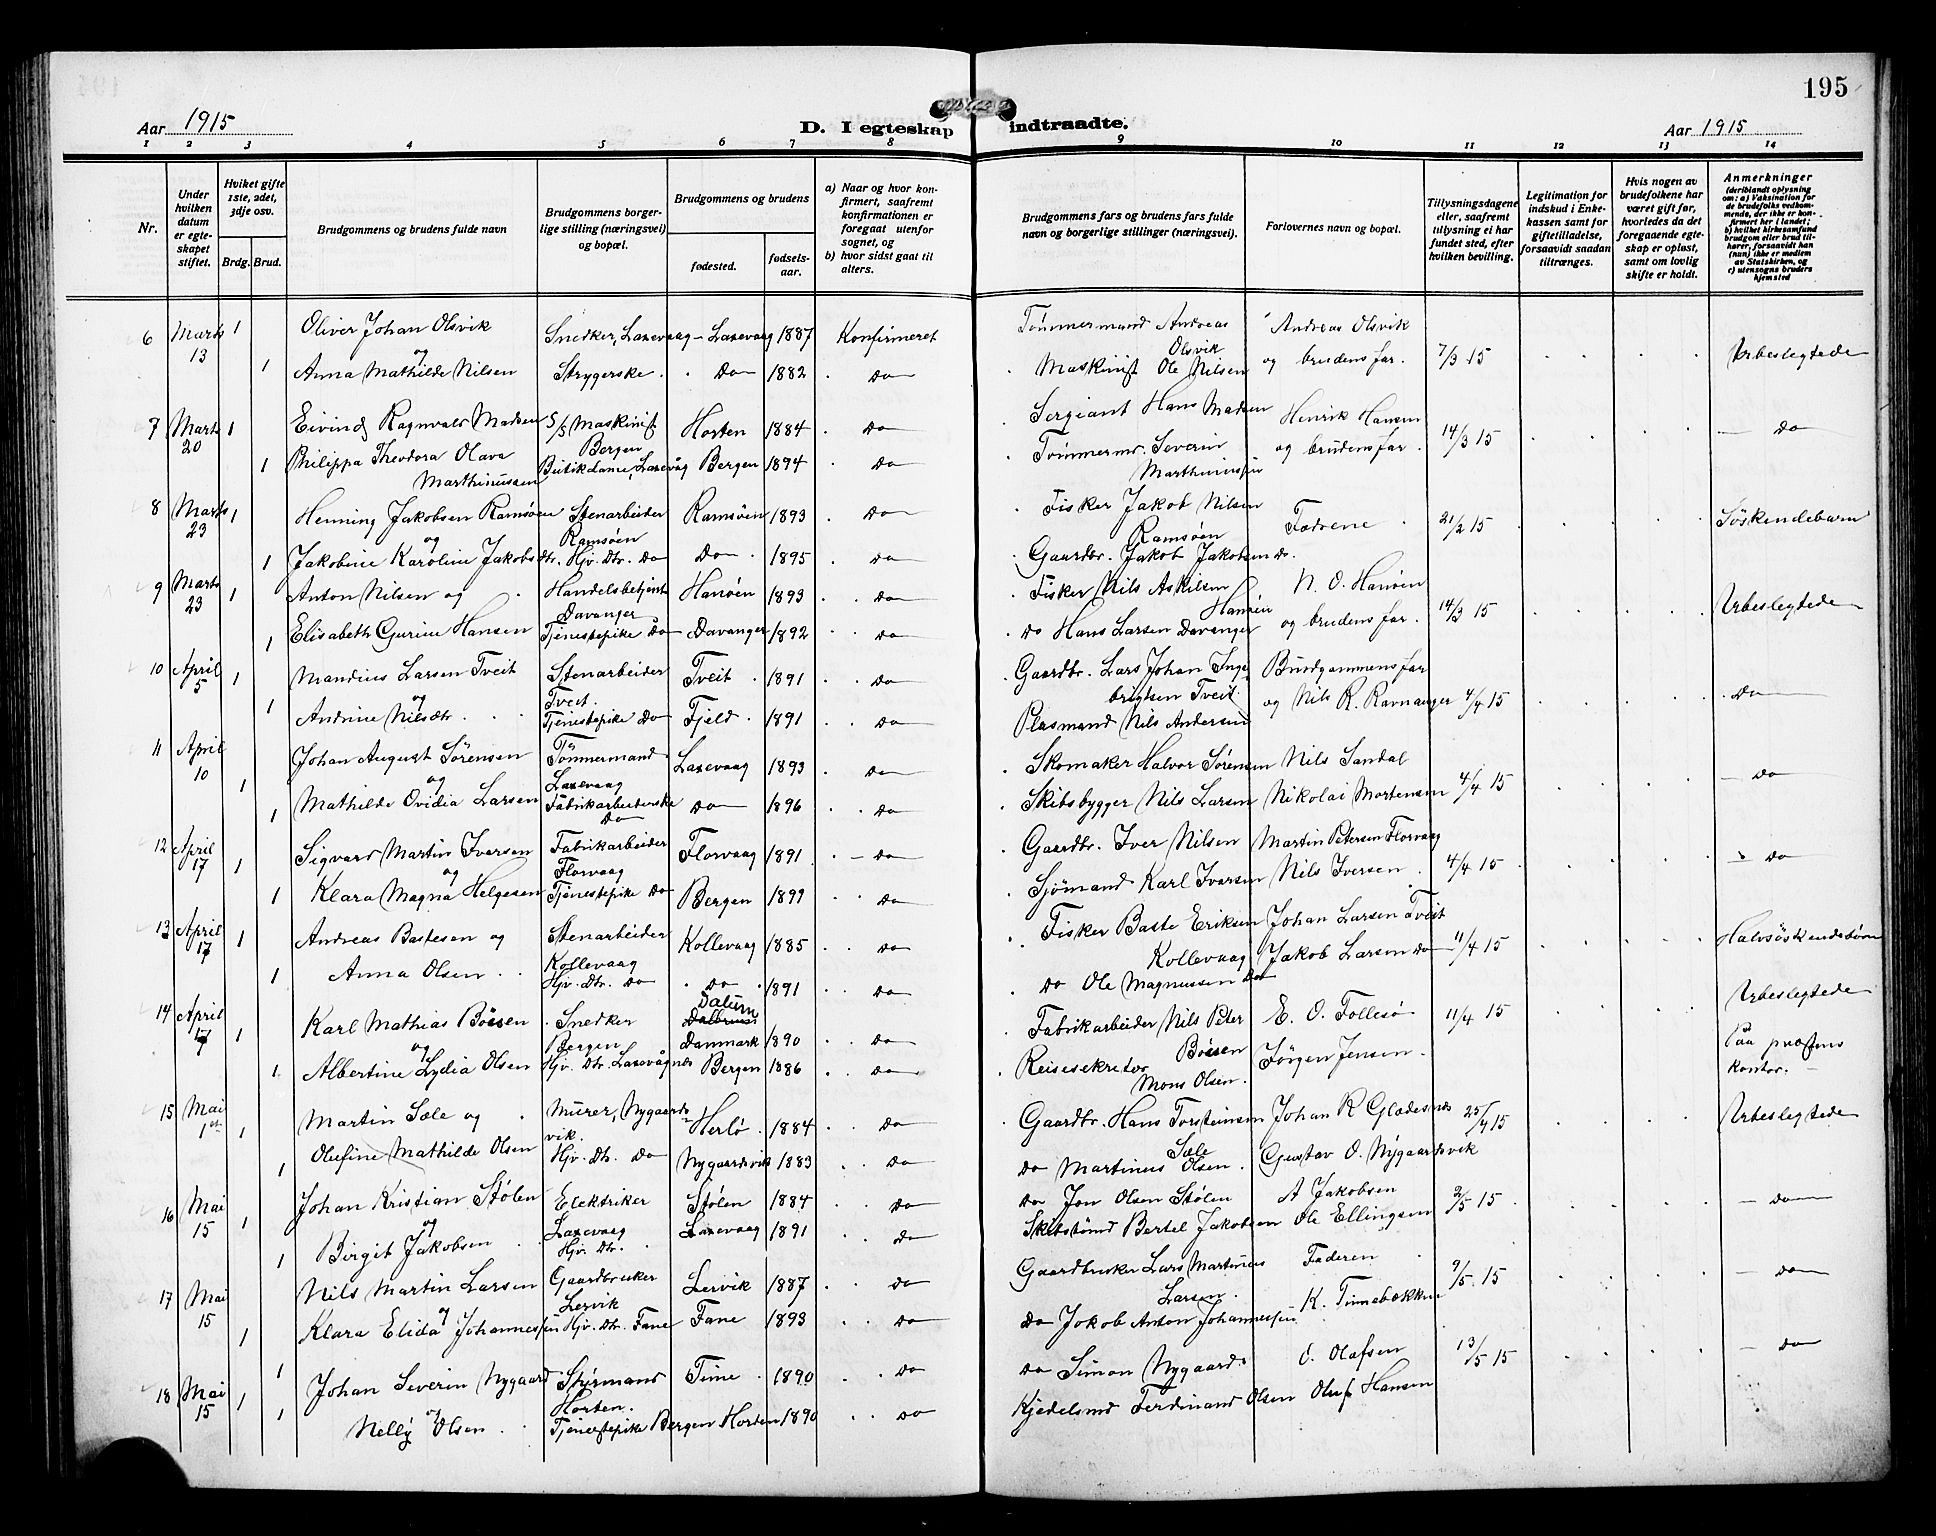 195
Aar 1915
D. I egteskap indtraadte.
Aar 1915
1 2 3 4 5 6 7 8 9 10 11 12 13 14
Nr.
Under hvilken datum er egteskapet stiftet.
Hviket gifte 1ste, 2det, 3dje osv.
Brdg. Brud.
Brudgommens og brudens fulde navn
Brudgommens borgerlige stilling (næringsvei) og bopæl.
Brudgommens og brudens
fødested.
fødselsaar.
a) Naar og hvor konfirmert, saafremt konfirmationen er foregaat utenfor sognet, og
b) hvor sidst gaat til alters.
Brudgommens fars og brudens fars fulde navn og borgerlige stillinger (næringsvei).
Forlovernes navn og bopæl.
Tillysningsdagene eller, saafremt tillysning ei har fundet sted, efter hvilken bevilling.
Legitimation for indskud i Enkekassen samt for giftetilladelse, forsaavidt saadan tiltrænges.
Hvis nogen av brudefolkene har været gift før, hvorledes da det foregaaende egteskap er opløst, samt om lovlig skifte er holdt.
Anmerkninger (deriblandt oplysning om: a) Vaksination for de brudefolks vedkommende, der ikke er konfirmert her i landet; b) hvilket kirkesamfund brudgom eller brud tilhører, forsaavidt han (hun) ikke er medlem av Statskirken, og c) utensogns bruders hjemsted
6 Marts 13 1 Oliver Johan Olsvik Snedker, Laxevaag – Laxevaag 1887 Konfirmeret Tømmermand Andreas Olsvik Andreas Olsvik 7/3 15 Ubeslegtede
og
1 Anna Mathilde Nilsen Strygerske Do 1882 Do Maskinist Ole Nilsen og brudens far.
7 Marts 20 1 Eivind Ragnvald Madsen S/S Maskinist Bergen Horten 1884 Do Sergiant Hans Madsen Henrik Hansen 14/3 15 Do
1 Philippa Theodora Olava Marthinussen Butikdame, Laxevåg Bergen 1894 Do Tømmerm. Severin Marthinussen og brudens far.
8 Marts 23 1 Henning Jakobsen Ramsøen Stenarbeider Ramsøen Ramsøen 1893 Do Fisker Jakob Nilsen Ramsøen Fædrene 21/2 15 Søskendebarn
og
1 Jakobine Karoline Jakobsdtr. Hjv. Dtr. Do Do 1895 Do Gaardbr. Jakob Jakobsen Do.
9 Marts 23 1 Anton Nilsen og Handelsbetjent Davanger Hanøen 1893 Do Fisker Nils Askilsen Hanøen N. O. Hanøen 14/3 15 Ubeslegtede
1 Elisabeth Gurine Hansen Tjenestepike Do Davanger 1892 Do Do Hans Larsen Davanger og brudens far.
10 April 5 1 Mandius Larsen Tveit Stenarbeider Tveit. Tveit 1891 Do Gaardbr. Lars Johan Ingebrigtsen Tveit Brudgommens far 4/4 15 Do
og
1 Andrine Nilsdtr. Tjenestepike Do Fjeld 1891 Do Plasmand Nils Andersen og Nils R. Ravnanger
11 April 10 1 Johan August Sörensen Tömmermand Laxevaag Laxevaag 1893 Do Skomaker Halvor Sörensen Nils Sandal 4/4 15 Do
og
1 Mathilde Ovidia Larsen Fabrikarbeiderske Do Do 1896 Do Skibsbygger Nils Larsen Nikolai Mortensen
12 April 17 1 Sigvard Martin Iversen Fabrikarbeider Florvaag Florvaag 1891 Do Gaardbr. Iver Nilsen Martin Petersen Florvaag 4/4 15 Do
og
1 Klara Magna Helgesen Tjenestepike Do Bergen 1899 Do Sjömand Karl Iversen Nils Iversen.
13 April 17 1 Andreas Bastesen og Stenarbeider Kollevaag Kollevaag 1885 Do Fisker Baste Eriksen Kollevaag Johan Larsen Tveit 11/4 15 Halvsöskendebörn
1 Anna Olsen Hjv. Dtr. Do Do 1891 Do Do Ole Magnussen Do Jakob Larsen Do
14 April 17 1 Karl Mathias Boisen Snedker Bergen Dalum Danmark 1890 Do Fabrikarbeider Nils Peter Boisen E. O. Follesö 11/4 15 Ubeslegtede
og
1 Albertine Lydia Olsen Hjv. Dtr. Laxevågnes Bergen 1886 Do Reisesekretær Mons Olsen. Jörgen Jensen. Paa prestens kontor.
15 Mai 1ste 1 Martin Sæle og Murer, Nygaardsvik. Herlö 1884 Do Gaardbr. Hans Torsteinsen Sæle Johan R Gladesnes 25/4 15 Ubeslegtede
1 Olufine Mathilde Olsen Hjv. Dtr. Do Nygaardsvik 1883 Do Do Martinus Olsen. Gustav O. Nygaardsvik
16 Mai 15 1 Johan Kristian Stölen Elektriker Laxevaag Stölen 1884 Do Do Jon Olsen Stölen A Jakobsen 2/5 15 Do
og
1 Birgit Jakobsen Hjv. Dtr. Laxevaag 1891 Do Skibstömd Bertel Jakobsen Ole Ellingsen
17 Mai 15 1 Nils Martin Larsen Gaardbruker Lervik Lervik 1887 Do Gaardbruker Lars Martinus Larsen. Faderen 9/5 15 Do
og
1 Klara Elida Johannessen Hjv. Dtr. Fane Fane 1893 Do Do Jakob Anton Johannessen K. Tinnebækken
18 Mai 15 1 Johan Severin Nygaard Styrmand Horten. Time 1890 Do Do Simon Nygaard O. Olafsen 13/5 15 Do
og
1 Nelly Olsen Tjenestepike Bergen Horten 1890 Do Kjedelsmd Ferdinand Olsen Oluf Hansen